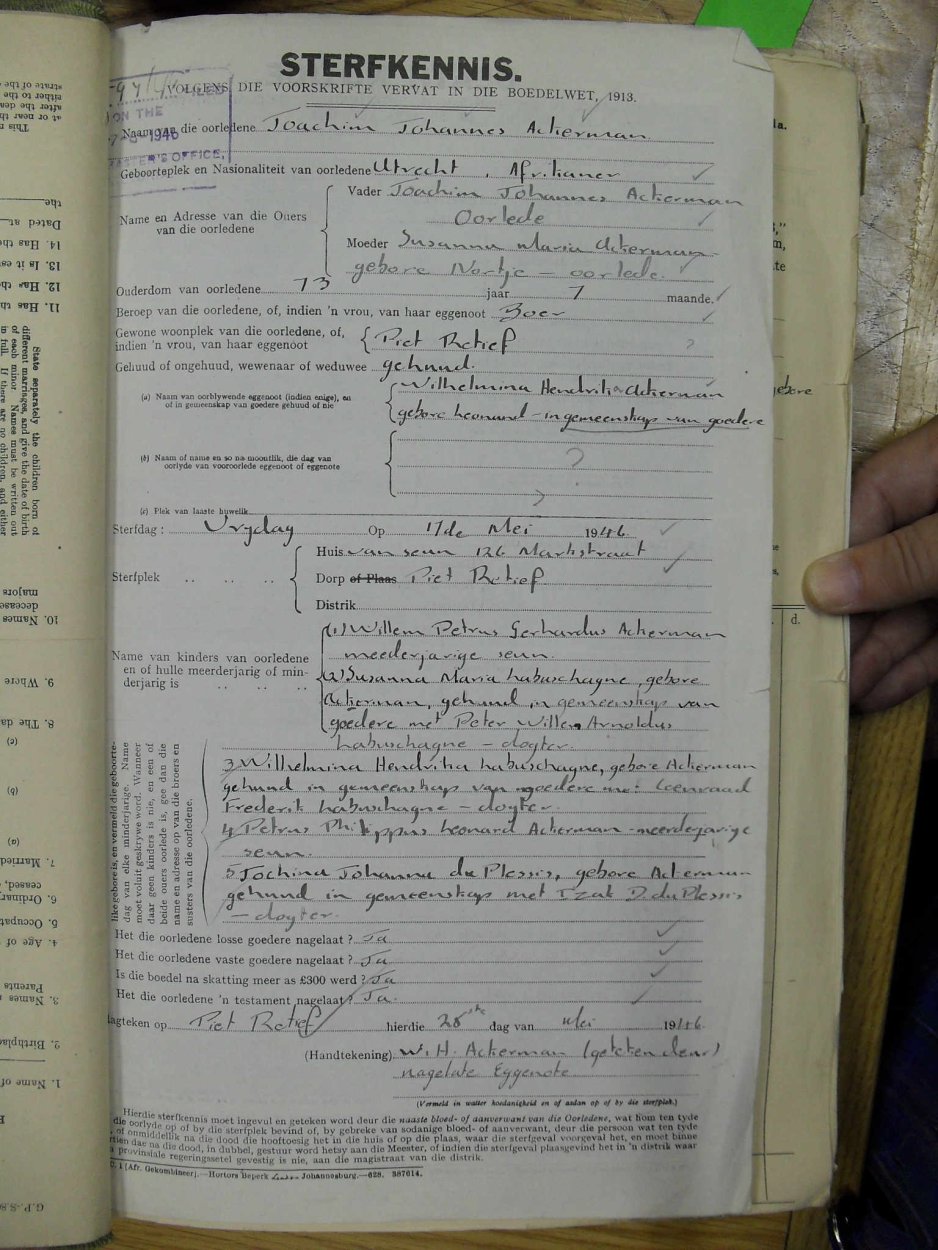 STERFKENNIS.
VOLGENS DIE VOORSKRIFTE VERVAT IN DIE BOEDELWET, 1913.
FILED
ON THE
1946
MASTER'S OFFICE,
Naam van die oorledene Joachim Johannes Ackerman
Geboorteplek en Nasionaliteit van oorledene Utrecht, Afrikaner
Name en Adresse van die Ouers van die oorledene
Vader Joachim Johannes Ackerman
Oorlede
Moeder Susanna Maria Ackerman
gebore Nortje – oorlede.
Ouderdom van oorledene 73 jaar 7 maande.
Beroep van die oorledene, of, indien 'n vrou, van haar eggenoot Boer
Gewone woonplek van die oorledene, of, indien 'n vrou, van haar eggenoot Piet Retief ?
Gehuud of ongehuud, wewenaar of weduwee gehuud.
(a) Naam van oorblywende eggenoot (indien enige), en of in gemeenskap van goedere gehuud of nie
Wilhelmina Hendrika Ackerman
gebore Leonard – in gemeenskap van goedere
(b) Naam of name en so na moontlik, die dag van oorlyde van vooroorlede eggenoot of eggenote
?
(c) Plek van laaste huwelik
Sterfdag : Vrydag Op 17de Mei 1946
Sterfplek
Huis van seun 126 Markstraat
Dorp of Plaas Piet Retief
Distrik
Name van kinders van oorledene en of hulle meerderjarig of minderjarig is
(1) Willem Petrus Gerhardus Ackerman
meederjarige seun.
(2) Susanna Maria Labuschagne, gebore
Ackerman, gehuud in gemeenskap van
goedere met Peter Willem Arnoldus
Labuschagne – dogter.
like gebore is, en vermeld die geboorte-
dag van elke minderjarige. Name
moet voluit geskrywe word. Wanneer
daar geen kinders is nie, en een of
beide ouers oorlede is, gee dan die
name en adresse op van die broers en
susters van die oorledene.
3. Wilhelmina Hendrika Labuschagne, gebore Ackerman
gehuud in gemeenskap van goedere met Coenraad
Frederik Labuschagne – dogter.
4. Petrus Philippus Leonard Ackerman – meerderjarige
seun.
5. Jochina Johanna du Plessis, gebore Ackerman
gehuud in gemeenskap met Izak D. du Plessis
– dogter.
Het die oorledene losse goedere nagelaat ? Ja
Het die oorledene vaste goedere nagelaat ? Ja
Is die boedel na skatting meer as £300 werd ? Ja
Het die oorledene 'n testament nagelaat ? Ja.
Piet Retief hierdie 28ste dag van Mei 1946.
(Handtekening) W. H. Ackerman (geteken deur)
nagelate Eggenote
(Vermeld in watter hoedanigheid en of aldan op of by die sterfplek.)
Hierdie sterfkennis moet ingevul en geteken word deur die naaste bloed- of aanverwant van die Oorledene, wat hom ten tyde
die oorlyde op of by die sterfplek bevind of, by gebreke van sodanige bloed- of aanverwant, deur die persoon wat ten tyde
of onmiddellik na die dood die hooftoesig het in die huis of op die plaas, waar die sterfgeval voorgeval het, en moet binne
dae na die dood, in dubbel, gestuur word hetsy aan die Meester, of indien die sterfgeval plaasgevind het in 'n distrik waar
provinsiale regeringssetel gevestig is nie, aan die magistraat van die distrik.
(Afr. Gekombineer).—Hortors Beperk Johannesburg.—628. 387614.